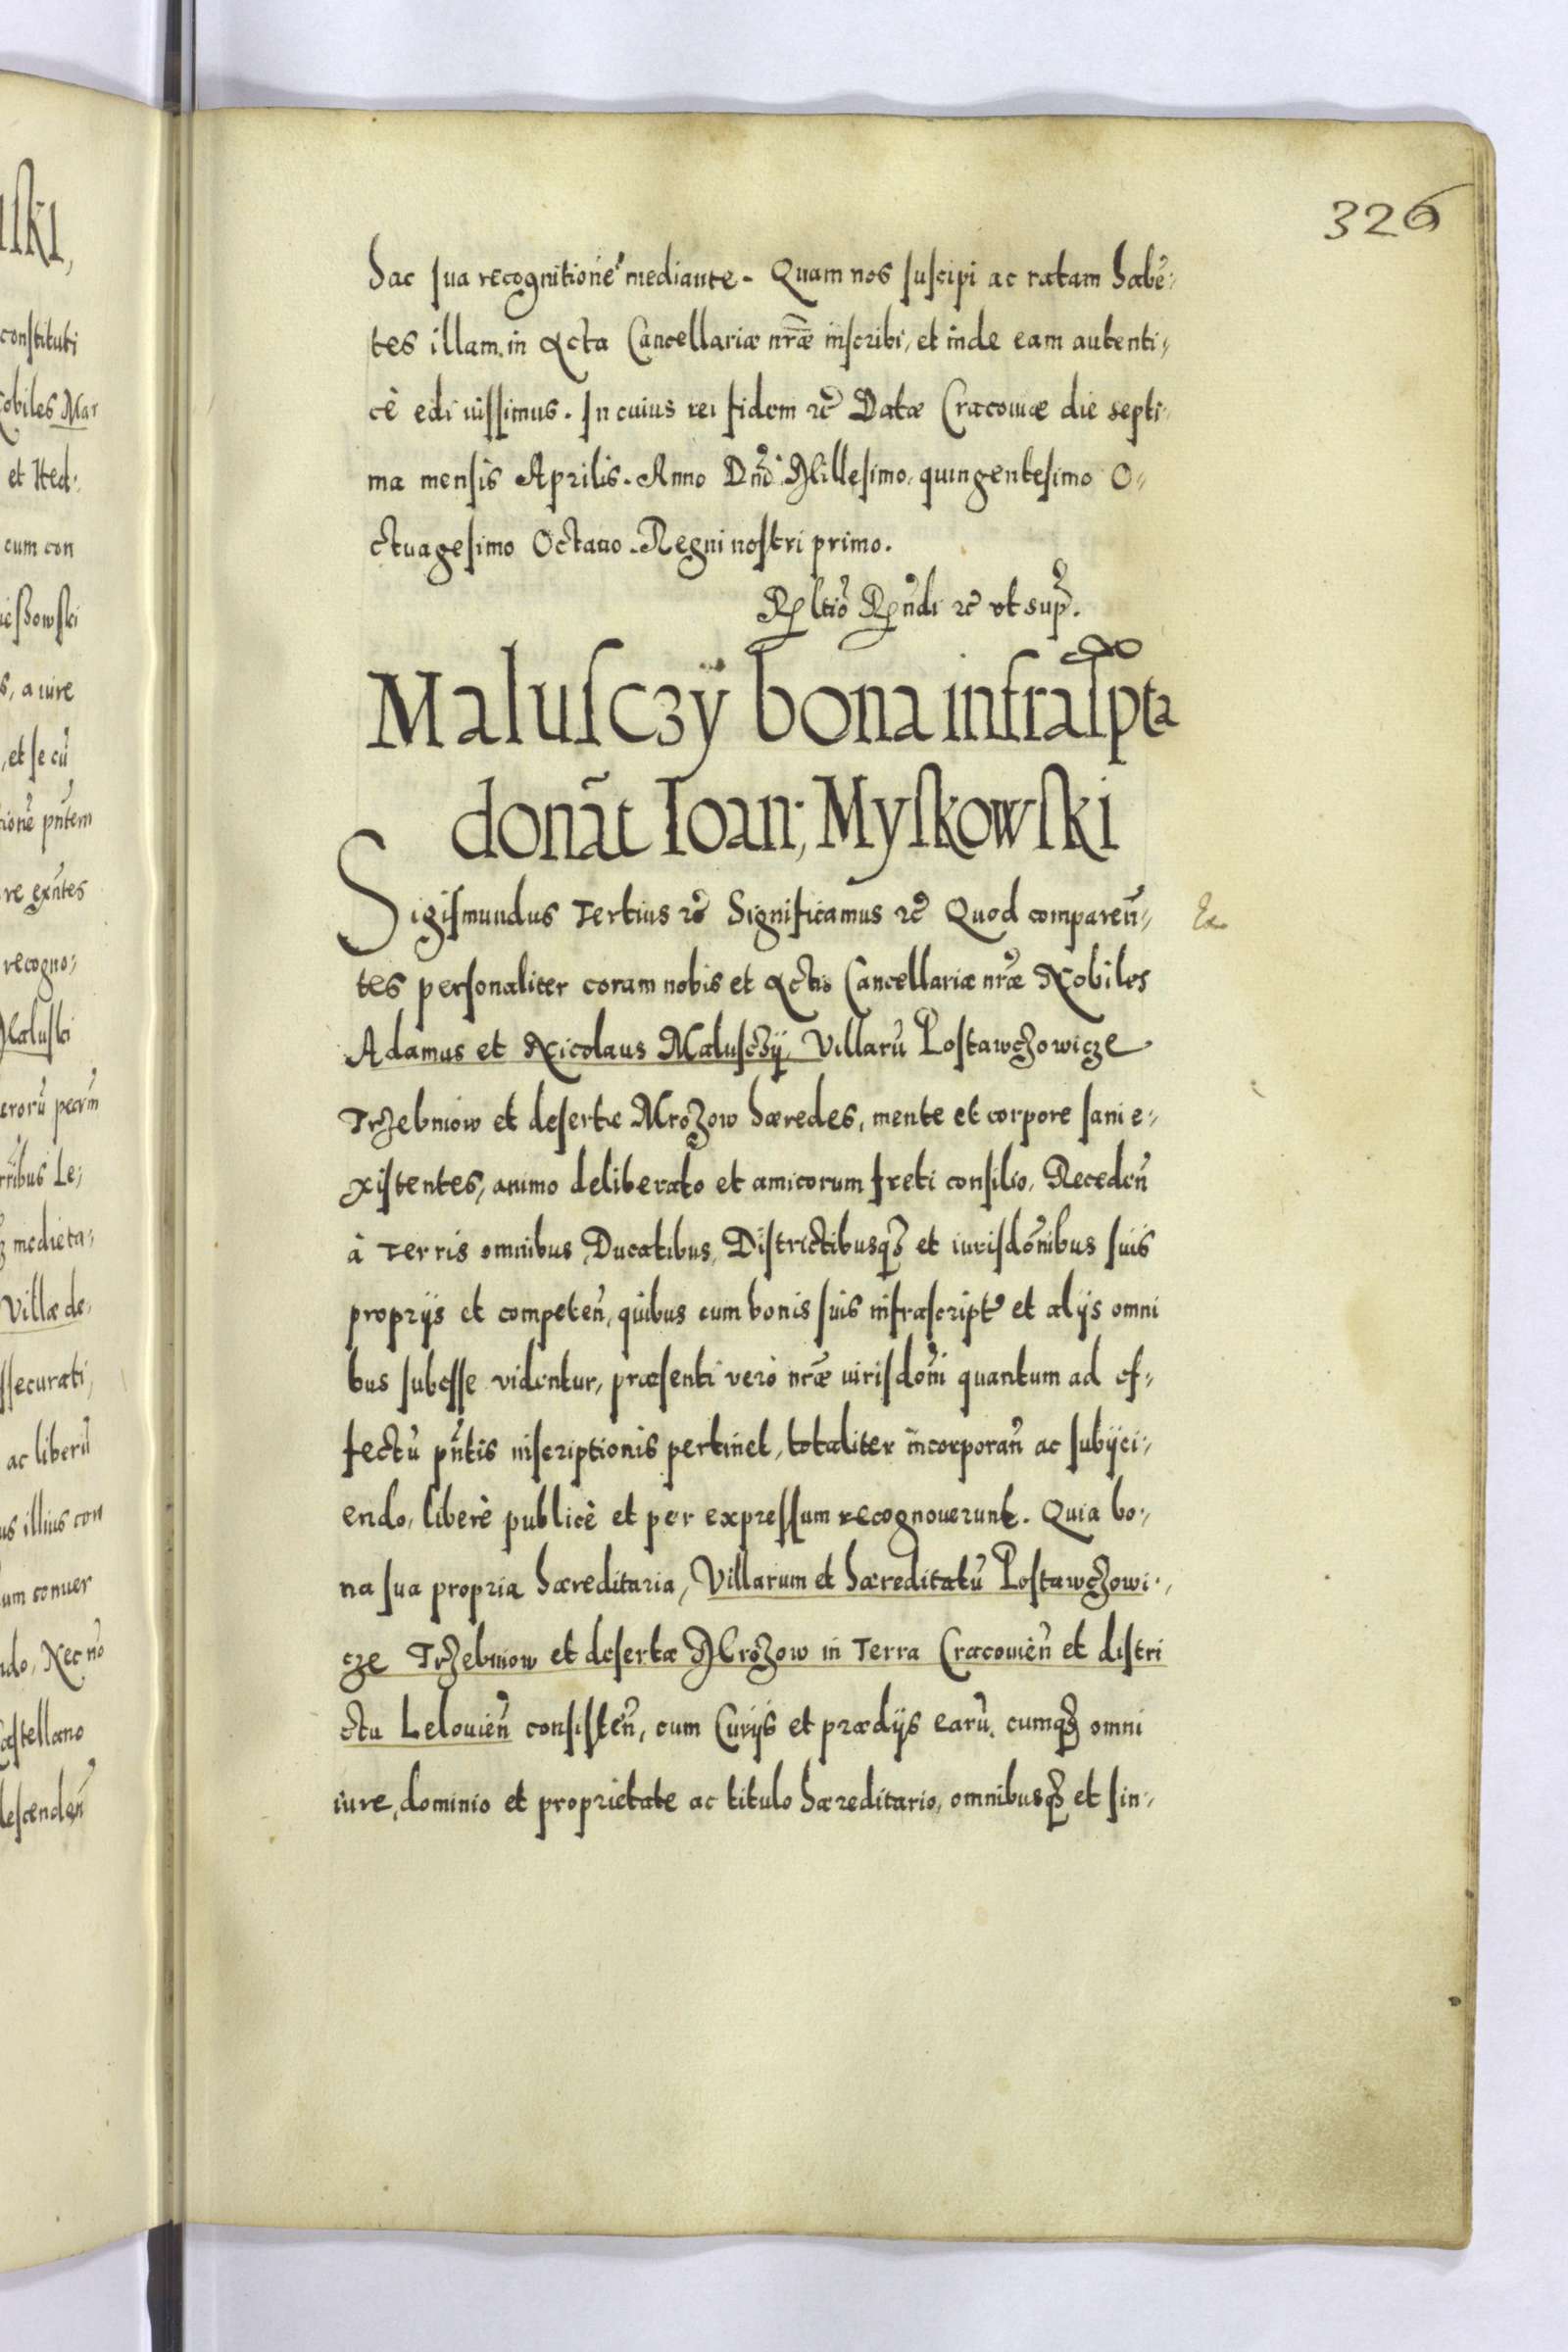 326
hac sua recognitione mediante. Quam nos suscipi ac ratam habẽ-
tes illam in Acta Cancellariæ nr̃æ inscribi, et inde eam autenti-
cè edi iussimus. In cuius rei fidem &c̃ Datæ Cracouiæ die septi-
ma mensis Aprilis. Anno Dn̄i Millesimo quingentesimo O-
ctuagesimo Octauo. Regni nostri primo.
Rltio Rn̄di &c̃ vt sup̃.
Malusczÿ bona infraſpta
donãt Ioan; Myſkowſki
Sigismundus Tertius &c̃ Significamus &c̃ Quod compareñ-
tes personaliter coram nobis et Actis Cancellariæ nr̃æ Nobiles
Adamus et Nicolaus Malusczÿ, Villarũ Postawczowicze
Trzebniow et desertæ Mrozow hæredes, mente et corpore sani e-
xistentes, animo deliberato et amicorum freti consilio, Recedeñ
à Terris omnibus, Ducatibus, Districtibusq₃ et iurisdõnibus suis
proprijs et competeñ, quibus cum bonis suis infrascript̃ et alijs omni
bus subesse videntur, præsenti verò nr̃æ iurisdõni quantum ad ef-
fectũ pñtis inscriptionis pertinet, totaliter incorporañ ac subijci-
endo, liberè publicè et per expressum recognouerunt. Quia bo-
na sua propria hæreditaria, Villarum et hæreditatũ Postawczowi-
cze Trzebniow et desertæ Mrozow in Terra Cracouieñ et distri
ctu Lelouieñ consisteñ, cum Curijs et prædijs earũ, cumq₃ omni
iure, dominio et proprietate ac titulo hæreditario, omnibusq₃ et sin-